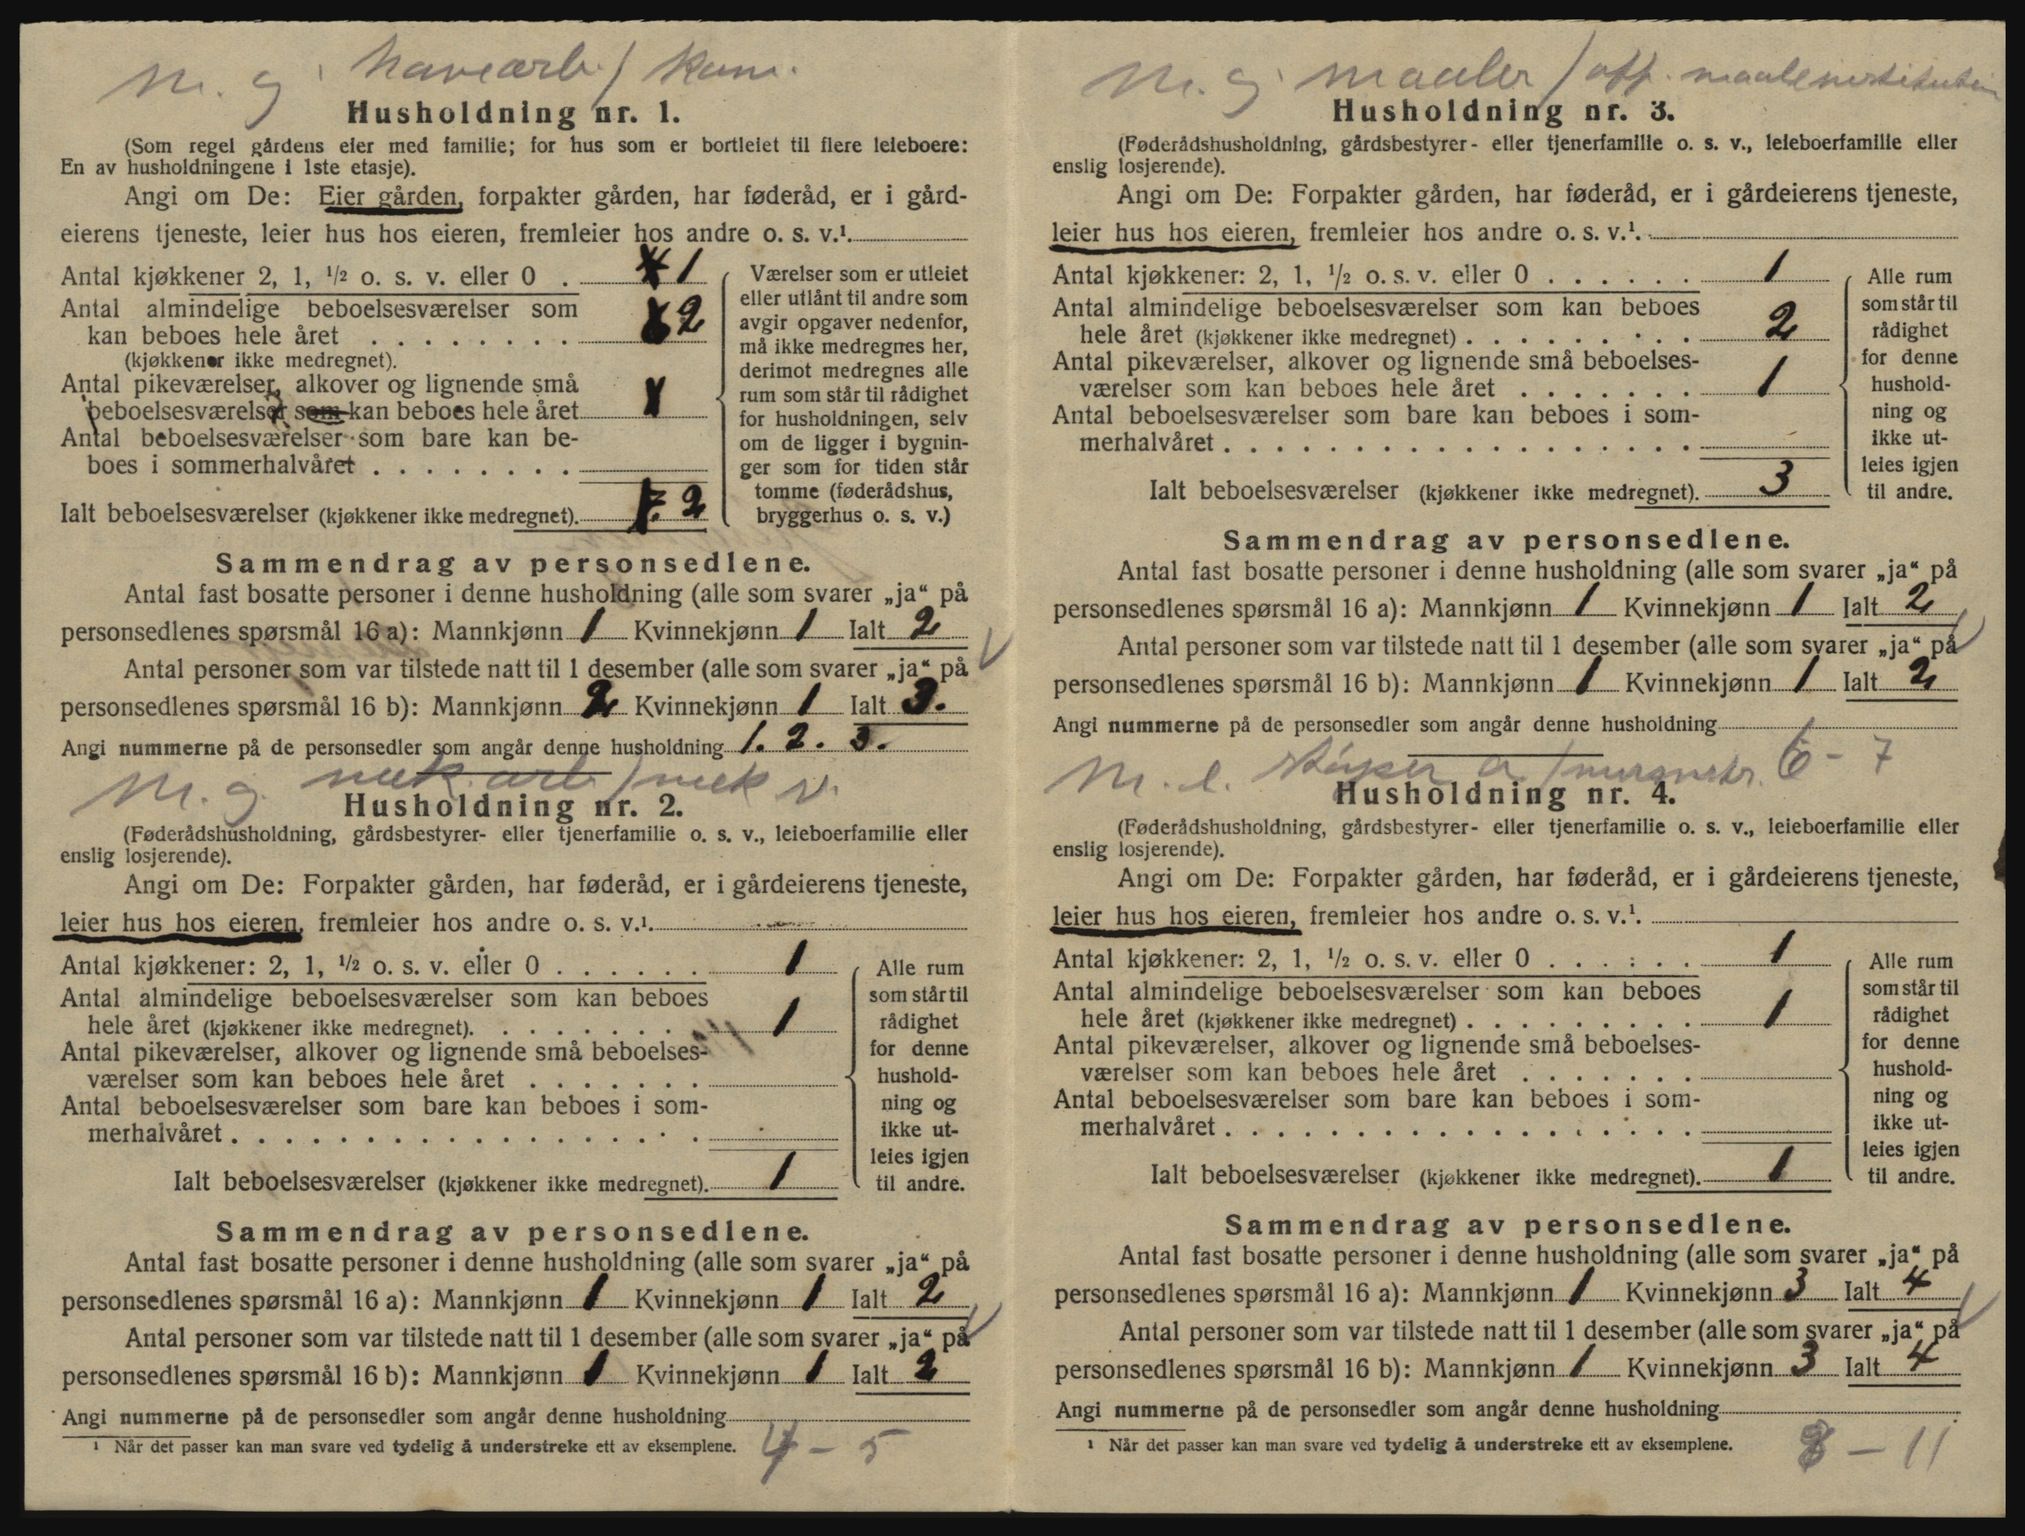 M. g. havearb. / kom.
Husholdning nr. 1.
(Som regel gårdens eier med familie; for hus som er bortleiet til flere leieboere:
En av husholdningene i 1ste etasje).
Angi om De: Eier gården, forpakter gården, har føderåd, er i gård-
eierens tjeneste, leier hus hos eieren, fremleier hos andre o. s. v.¹.
Antal kjøkkener 2, 1, ½ o. s. v. eller 0 . 1
Antal almindelige beboelsesværelser som
kan beboes hele året . . . . . . . . 2
(kjøkkener ikke medregnet).
Antal pikeværelser, alkover og lignende små
beboelsesværelser som kan beboes hele året
Antal beboelsesværelser som bare kan be-
boes i sommerhalvåret . . . . . . . .
Ialt beboelsesværelser (kjøkkener ikke medregnet). 2
Værelser som er utleiet
eller utlånt til andre som
avgir opgaver nedenfor,
må ikke medregnes her,
derimot medregnes alle
rum som står til rådighet
for husholdningen, selv
om de ligger i bygnin-
ger som for tiden står
tomme (føderådshus,
bryggerhus o. s. v.)
Sammendrag av personsedlene.
Antal fast bosatte personer i denne husholdning (alle som svarer „ja“ på
personsedlenes spørsmål 16 a): Mannkjønn 1 Kvinnekjønn 1 Ialt 2
Antal personer som var tilstede natt til 1 desember (alle som svarer „ja“ på
personsedlenes spørsmål 16 b): Mannkjønn 2 Kvinnekjønn 1 Ialt 3.
Angi nummerne på de personsedler som angår denne husholdning 1. 2. 3.
M. g. mek. arb. / mek v.
Husholdning nr. 2.
(Føderådshusholdning, gårdsbestyrer- eller tjenerfamilie o. s. v., leieboerfamilie eller
enslig losjerende).
Angi om De: Forpakter gården, har føderåd, er i gårdeierens tjeneste,
leier hus hos eieren, fremleier hos andre o. s. v.¹.
Antal kjøkkener: 2, 1, ½ o. s. v. eller 0 . . . . . . 1
Antal almindelige beboelsesværelser som kan beboes
hele året (kjøkkener ikke medregnet). . . . . . . . 1
Antal pikeværelser, alkover og lignende små beboelses-
værelser som kan beboes hele året . . . . . . .
Antal beboelsesværelser som bare kan beboes i som-
merhalvåret . . . . . . . . . . . . . . . . . .
Ialt beboelsesværelser (kjøkkener ikke medregnet). 1
Alle rum
som står til
rådighet
for denne
hushold-
ning og
ikke ut-
leies igjen
til andre.
Sammendrag av personsedlene.
Antal fast bosatte personer i denne husholdning (alle som svarer „ja“ på
personsedlenes spørsmål 16 a): Mannkjønn 1 Kvinnekjønn 1 Ialt 2
Antal personer som var tilstede natt til 1 desember (alle som svarer „ja“ på
personsedlenes spørsmål 16 b): Mannkjønn 1 Kvinnekjønn 1 Ialt 2
Angi nummerne på de personsedler som angår denne husholdning
4 - 5
¹ Når det passer kan man svare ved tydelig å understreke ett av eksemplene.
M. g. maaler /
Husholdning nr. 3.
(Føderådshusholdning, gårdsbestyrer- eller tjenerfamilie o. s. v., leieboerfamilie eller
enslig losjerende).
Angi om De: Forpakter gården, har føderåd, er i gårdeierens tjeneste,
leier hus hos eieren, fremleier hos andre o. s. v.¹.
Antal kjøkkener: 2, 1, ½ o. s. v. eller 0 . . . . . . 1
Antal almindelige beboelsesværelser som kan beboes
hele året (kjøkkener ikke medregnet) . . . . . . . . . 2
Antal pikeværelser, alkover og lignende små beboelses-
værelser som kan beboes hele året . . . . . . . 1
Antal beboelsesværelser som bare kan beboes i som-
merhalvåret . . . . . . . . . . . . . . . . . .
Ialt beboelsesværelser (kjøkkener ikke medregnet). 3
Alle rum
som står til
rådighet
for denne
hushold-
ning og
ikke ut-
leies igjen
til andre.
Sammendrag av personsedlene.
Antal fast bosatte personer i denne husholdning (alle som svarer „ja“ på
personsedlenes spørsmål 16 a): Mannkjønn 1 Kvinnekjønn 1 Ialt 2
Antal personer som var tilstede natt til 1 desember (alle som svarer „ja“ på
personsedlenes spørsmål 16 b): Mannkjønn 1 Kvinnekjønn 1 Ialt 2
Angi nummerne på de personsedler som angår denne husholdning
6 - 7
M. e.
Husholdning nr. 4.
(Føderådshusholdning, gårdsbestyrer- eller tjenerfamilie o. s. v., leieboerfamilie eller
enslig losjerende).
Angi om De: Forpakter gården, har føderåd, er i gårdeierens tjeneste,
leier hus hos eieren, fremleier hos andre o. s. v.¹.
Antal kjøkkener: 2, 1, ½ o. s. v. eller 0 . . . . . . 1
Antal almindelige beboelsesværelser som kan beboes
hele året (kjøkkener ikke medregnet) . . . . . . . . . 1
Antal pikeværelser, alkover og lignende små beboelses-
værelser som kan beboes hele året . . . . . . .
Antal beboelsesværelser som bare kan beboes i som-
merhalvåret . . . . . . . . . . . . . . . . . .
Ialt beboelsesværelser (kjøkkener ikke medregnet). 1
Alle rum
som står til
rådighet
for denne
hushold-
ning og
ikke ut-
leies igjen
til andre.
Sammendrag av personsedlene.
Antal fast bosatte personer i denne husholdning (alle som svarer „ja“ på
personsedlenes spørsmål 16 a): Mannkjønn 1 Kvinnekjønn 3 Ialt 4
Antal personer som var tilstede natt til 1 desember (alle som svarer „ja“ på
personsedlenes spørsmål 16 b): Mannkjønn 1 Kvinnekjønn 3 Ialt 4
Angi nummerne på de personsedler som angår denne husholdning
8 - 11
¹ Når det passer kan man svare ved tydelig å understreke ett av eksemplene.